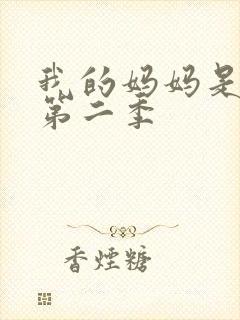 我的妈妈是
第二季
香烟糖